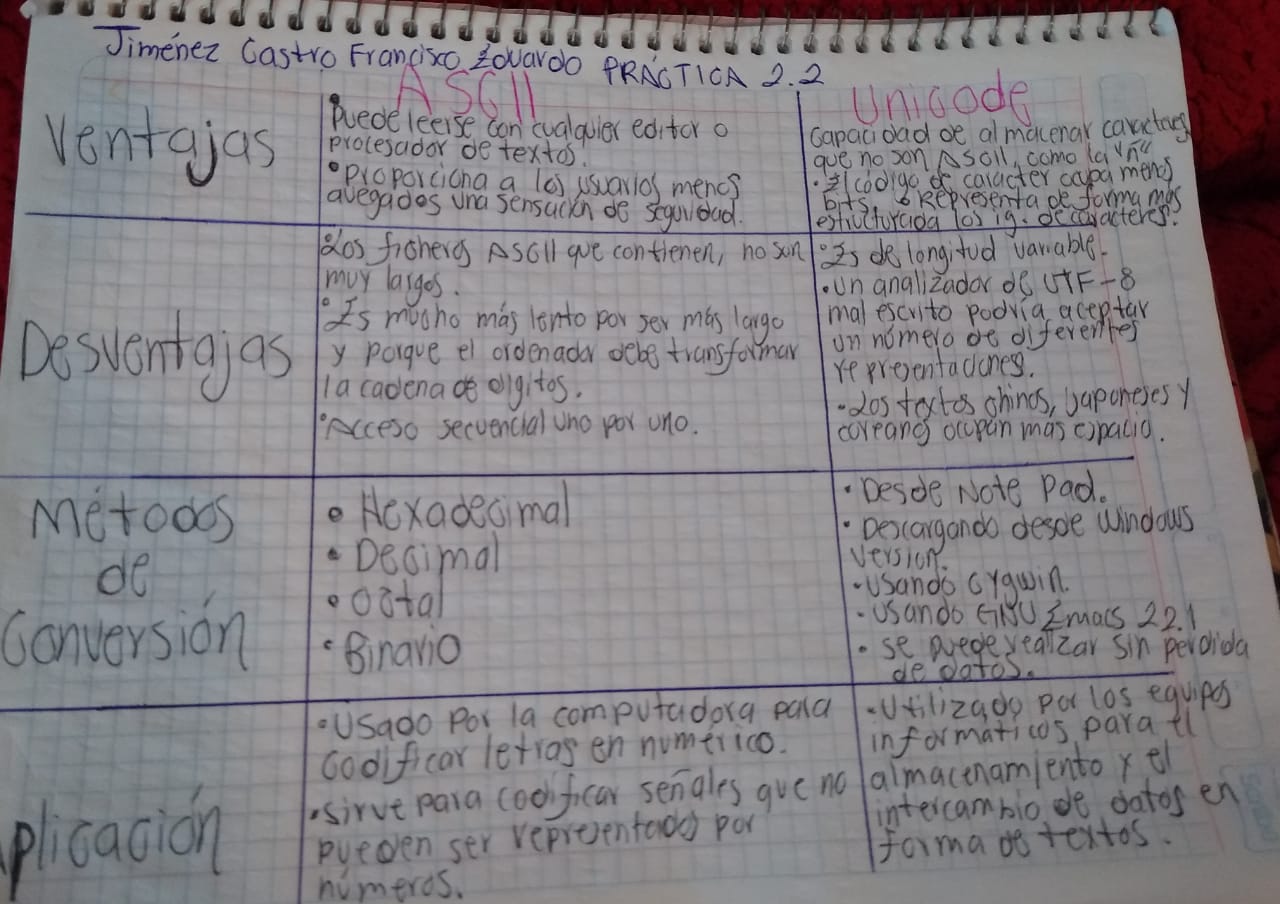 Jiménez Castro Francisco Eduardo PRÁCTICA 2.2
ASCII
Unicode
Ventajas
Puede leerse con cualquier editor o
procesador de textos.
• Proporciona a los usuarios menos
avegados una sensación de seguridad.
Capacidad de almacenar caracteres
que no son ASCII, como la "ñ"
• El código de caracter ocupa menos
bits, Representa de forma más
estructurada los ig. de caracteres.
Desventajas
Los ficheros ASCII que contienen, no son
muy largos.
• Es mucho más lento por ser más largo
y porque el ordenador debe transformar
la cadena de dígitos.
• Acceso secuencial uno por uno.
• Es de longitud variable.
• Un analizador de UTF-8
mal escrito podría aceptar
un número de diferentes
representaciones.
• Los textos chinos, japoneses y
coreanos ocupan mas espacio.
Métodos
de
Conversión
• Hexadecimal
• Decimal
• Octal
• Binario
• Desde Note Pad.
• Descargando desde Windows
version.
• Usando Cygwin.
• Usando GNU Emacs 22.1
• se puede realizar sin perdida
de datos.
plicación
• Usado por la computadora para
codificar letras en numérico.
• Sirve para codificar señales que no
pueden ser representados por
números.
• Utilizado por los equipos
informáticos para el
almacenamiento y el
intercambio de datos en
forma de textos.